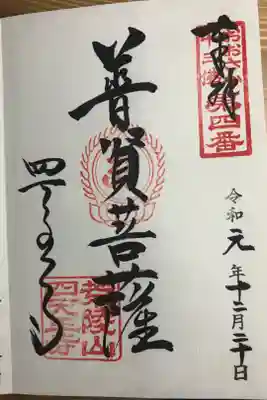 奉拝
第四番
普賢菩薩
四天王寺
荒陵山
四天王寺
令和元年十二月二十日